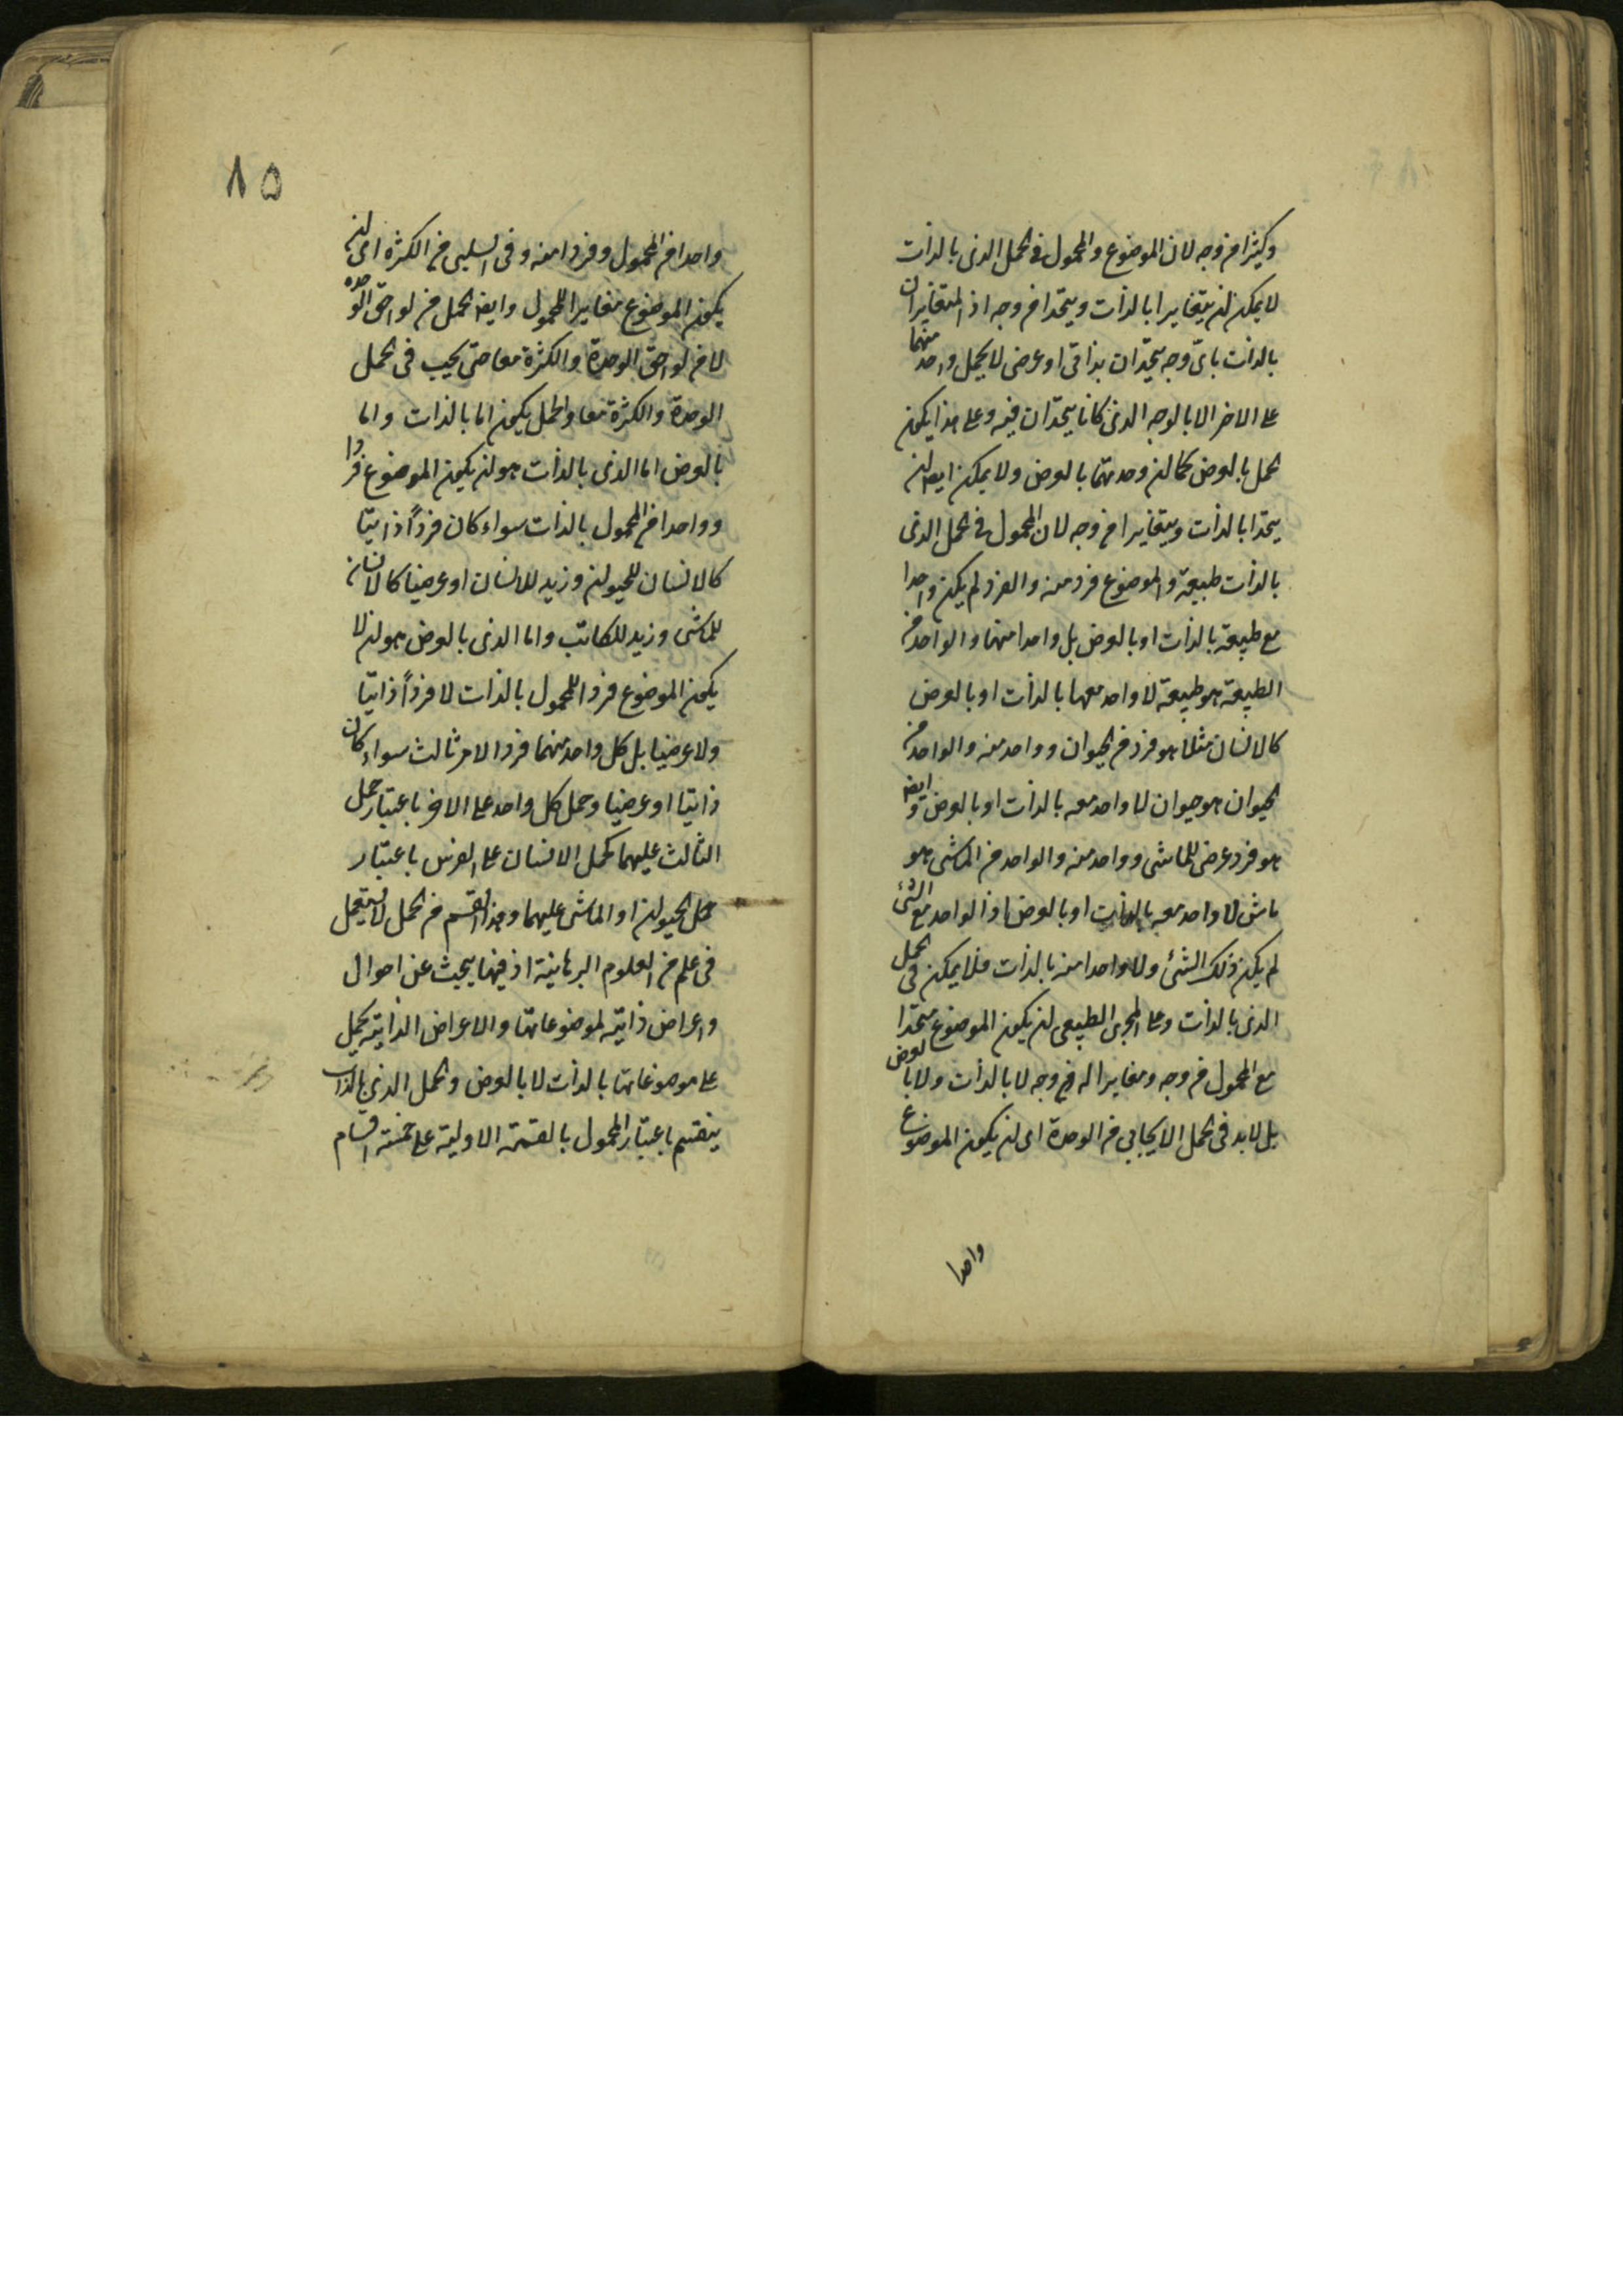 وكثيرا من وجه لان الموضوع والمحمول في الحمل الذي بالذات
لا يمكن ان يتغايرا بالذات ويتحدا من وجه اذ المتغايران
بالذات باي وجه يتحدان بذاتي او عرضي لا يحمل واحد منهما
على الاخر الا بالوجه الذي كانا يتحدان فيه وعلى هذا يكون
الحمل بالعرض كما ان وحدتهما بالعرض ولا يمكن ايضا ان
يتحدا بالذات ويتغايرا من وجه لان المحمول في الحمل الذي
بالذات طبيعة والموضوع فرد منه والفرد لم يكن واحدا
مع طبيعة بالذات او بالعرض بل واحدا منها والواحد من
الطبيعة هو طبيعة لا واحد معها بالذات او بالعرض
كالانسان مثلا هو فرد من الحيوان وواحد منه والواحد من
الحيوان هو حيوان لا واحد معه بالذات او بالعرض وايضا
هو فرد عرضي للماشي وواحد منه والواحد من الماشي هو
ماش لا واحد معه بالذات او بالعرض اذ الواحد مع الشئ
لم يكن ذلك الشئ ولا واحدا منه بالذات فلا يمكن في الحمل
الذي بالذات وعلى المجرى الطبيعي ان يكون الموضوع متحدا
مع المحمول من وجه ومغايرا له من وجه لا بالذات ولا بالعرض
بل لابد في الحمل الايجابي من الوحدة اى ان يكون الموضوع
واحدا
٨٥
واحدا من المحمول وفردا منه وفي السلبي من الكثرة اى ان
يكون الموضوع مغايرا للمحمول وايضا الحمل من لواحق الوحدة
لا من لواحق الوحدة والكثرة معا حتى يجب في الحمل
الوحدة والكثرة معا والحمل يكون اما بالذات واما
بالعرض اما الذي بالذات هو ان يكون الموضوع فردا
وواحدا من المحمول بالذات سواء كان فرداً ذاتيا
كالانسان للحيوان وزيد للانسان او عرضيا كالانسان
للماشي وزيد للكاتب واما الذي بالعرض هو ان لا
يكون الموضوع فردا للمحمول بالذات لا فرداً ذاتيا
ولا عرضيا بل كل واحد منهما فردا لامر ثالث سواء كان
ذاتيا او عرضيا وحمل كل واحد على الاخر باعتبار حمل
الثالث عليهما كحمل الانسان على الفرس باعتبار
حمل الحيوان او الماشي عليهما وهذا القسم من الحمل لا يستعمل
في علم من العلوم البرهانية اذ فيها يبحث عن احوال
واعراض ذاتية لموضوعاتها والاعراض الذاتية يحمل
على موضوعاتها بالذات لا بالعرض والحمل الذي بالذات
ينقسم باعتبار المحمول بالقسمة الاولية على خمسة اقسام